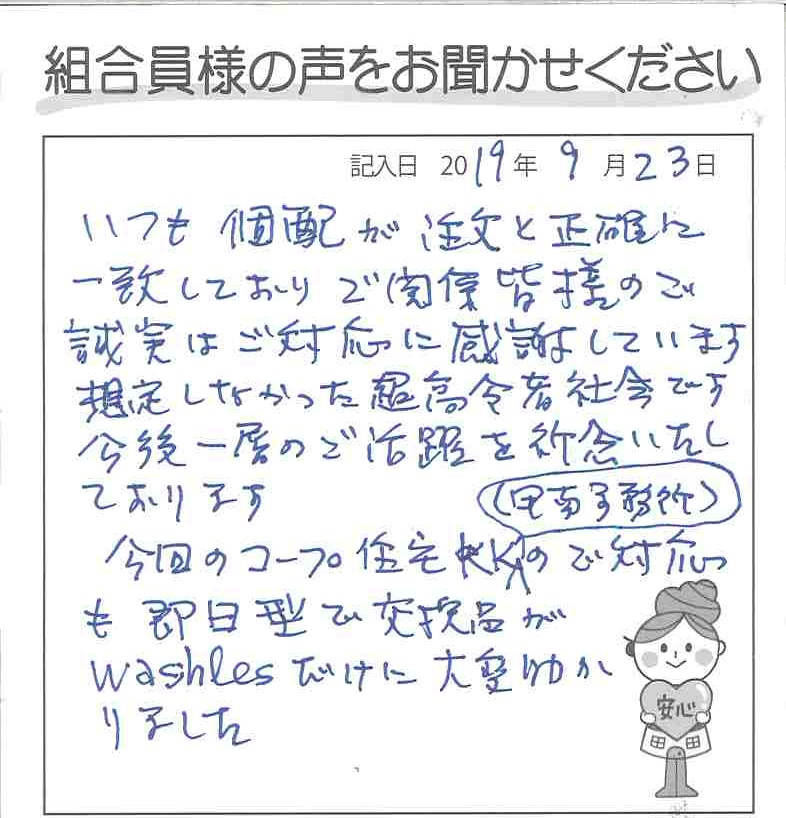 組合員様の声をお聞かせください
記入日 2019年 9月23日
いつも個配が注文と正確に
一致しておりご関係皆様のご
誠実はご対応に感謝しています
想定しなかった超高令者社会です
今後一層のご活躍を祈念いたし
ております
(甲南事務所)
今回のコープ住宅KKのご対応
も即日型で交換品が
washlesだけに大変助か
りました
安心